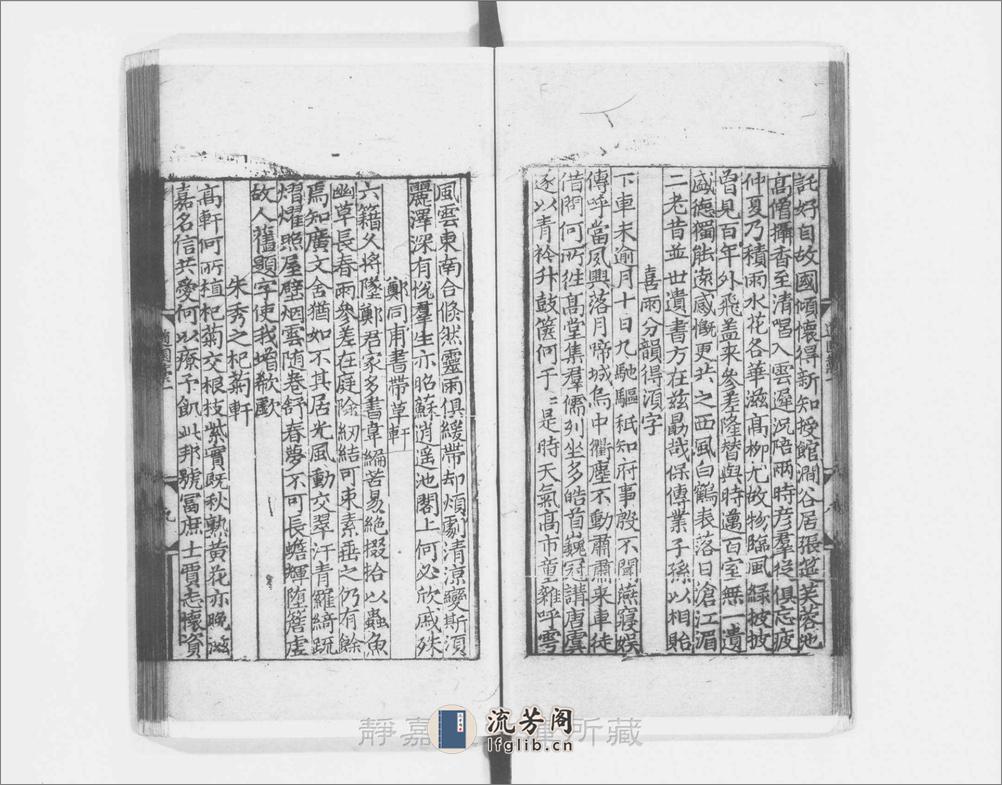 託好自故國傾懷得新知授館澗谷居張筵芙蓉池
高僧攜香至清唱入雲遲況陪兩時彦羣從俱忘疲
仲夏乃積雨水花各華滋高柳尤故物臨風綠披披
曾見百年外飛盖来參差隆替與時邁百室無一遺
盛德獨能遠感慨更共之西風白鷴表落日滄江湄
二老昔並世遺書方在兹勗哉保傳業子孫以相貽
喜雨分韻得湏字
下車未逾月十日九馳驅秖知府事殷不聞燕寢娱
傳呼當夙興落月啼城烏中衢塵不動肅肅来車徒
借問何所往髙堂集羣儒列坐多皓首巍冠講唐虞
逐以青衿升鼓篋何于〻是時天氣髙市童雜呼雩
風雲東南合倏然靈雨俱緩帶却煩劇清凉變斯湏
麗澤深有悅羣生亦昭蘇逍遥池閣上何必欣戚殊
鄭同甫書帶草軒
六籍久将墜鄭君家多書韋編苦易絶掇拾以蟲魚
幽草長春雨參差在庭除紉結可束素垂之仍有餘
焉知廣文舍猶如不其居光風動交翠汗青羅綺疏
熠燿照屋壁烟雲随卷舒春夢不可長蟾輝堕簷虚
故人舊題字使我增欷歔
朱秀之杞菊軒
髙軒何所植杞菊交根枝紫實既秋熟黄花亦晚滋
嘉名信共愛何以療子飢此邦號冨庶士賈志懷資
九
靜嘉
所藏
流芳阁
lfglib.cn